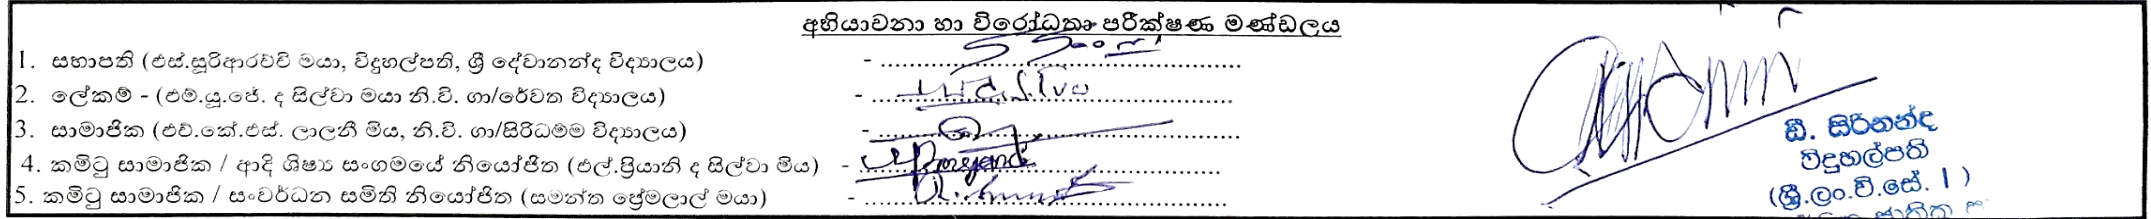 අභියාචනා හා විරෝධතා පරීක්ෂණ මණ්ඩලය
1. සභාපති (එස්.සූරිආරච්චි මයා, විදුහල්පති, ශ්‍රී දේවානන්ද විද්‍යාලය) - ..........
2. ලේකම් - (එම්.යූ.ජේ. ද සිල්වා මයා නි.වි. ගා/රේවත විද්‍යාලය) - ..........
3. සාමාජික (එච්.කේ.එස්. ලාලනී මිය, නි.වි. ගා/සිරිධම්ම විද්‍යාලය) - ..........
4. කමිටු සාමාජික / ආදි ශිෂ්‍ය සංගමයේ නියෝජිත (එල්.ප්‍රියානි ද සිල්වා මිය) - ..........
5. කමිටු සාමාජික / සංවර්ධන සමිති නියෝජිත (සමන්ත ප්‍රේමලාල් මයා) - ..........
ඩී. සිරිනන්ද
විදුහල්පති
(ශ්‍රී.ලං.වි.සේ. 1)